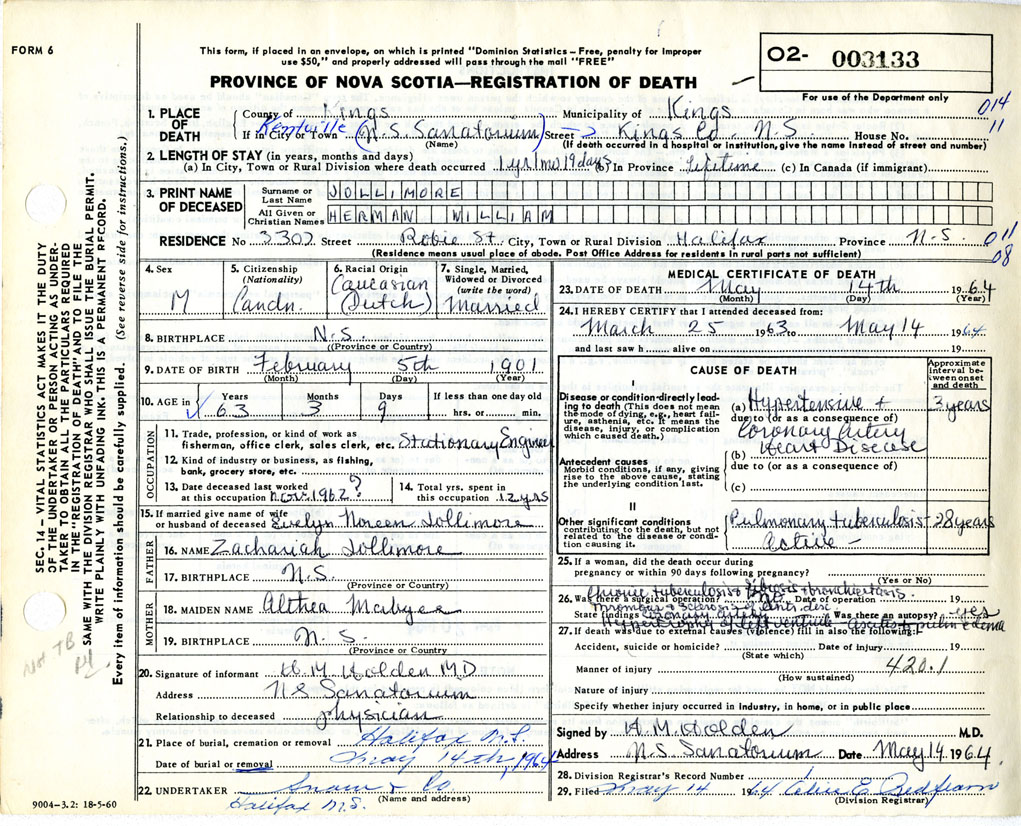 FORM 6
This form, if placed in an envelope, on which is printed "Dominion Statistics – Free, penalty for improper
use $50," and properly addressed will pass through the mail "FREE"
PROVINCE OF NOVA SCOTIA—REGISTRATION OF DEATH
02- 003133
For use of the Department only
014
11
1. PLACE OF DEATH
County of Kings Municipality of Kings
Kentville
If in City or Town (N.S. Sanatorium) Street Kings Co. N.S. House No.
(Name) (If death occurred in a hospital or institution, give the name instead of street and number)
2. LENGTH OF STAY (in years, months and days)
(a) In City, Town or Rural Division where death occurred 1 yr 1 mo 19 days (b) In Province Lifetime (c) In Canada (if immigrant)
3. PRINT NAME OF DECEASED
Surname or Last Name JOLLIMORE
All Given or Christian Names HERMAN WILLIAM
RESIDENCE No 3307 Street Robie St. City, Town or Rural Division Halifax Province N.S.
011
08
(Residence means usual place of abode. Post Office Address for residents in rural parts not sufficient)
4. Sex M
5. Citizenship (Nationality) Candn.
6. Racial Origin Caucasian (Dutch)
7. Single, Married, Widowed or Divorced (write the word) Married
8. BIRTHPLACE N.S.
(Province or Country)
9. DATE OF BIRTH February 5th 1901
(Month) (Day) (Year)
10. AGE in Years Months Days If less than one day old
63 3 9 hrs. or min.
OCCUPATION
11. Trade, profession, or kind of work as
fisherman, office clerk, sales clerk, etc. Stationary Engineer
12. Kind of industry or business, as fishing,
bank, grocery store, etc.
13. Date deceased last worked
at this occupation Nov. 1962?
14. Total yrs. spent in
this occupation 12 yrs
15. If married give name of wife
or husband of deceased Evelyn Noreen Jollimore
FATHER
16. NAME Zachariah Jollimore
17. BIRTHPLACE N.S.
(Province or Country)
MOTHER
18. MAIDEN NAME Althea
19. BIRTHPLACE N.S.
(Province or Country)
20. Signature of informant H.M. Holden M.D
Address N S Sanatorium
Relationship to deceased physician
21. Place of burial, cremation or removal Halifax N.S.
Date of burial or removal May 14th, 1964
22. UNDERTAKER Snow & Co.
(Name and address)
Halifax N.S.
9004—3.2: 18-5-60
MEDICAL CERTIFICATE OF DEATH
23. DATE OF DEATH May 14th 1964
(Month) (Day) (Year)
24. I HEREBY CERTIFY that I attended deceased from:
March 25 1963 to May 14 1964
and last saw h alive on 19
CAUSE OF DEATH
Approximate interval between onset and death
I
Disease or condition directly leading to death (This does not mean the mode of dying, e.g., heart failure, asthenia, etc. It means the disease, injury, or complication which caused death.)
(a) Hypertensive + 3 years
due to (or as a consequence of)
Coronary Artery
(b) Heart Disease
due to (or as a consequence of)
(c)
Antecedent causes
Morbid conditions, if any, giving rise to the above cause, stating the underlying condition last.
II
Other significant conditions
contributing to the death, but not related to the disease or condition causing it.
Pulmonary tuberculosis - 28 years
Active -
25. If a woman, did the death occur during
pregnancy or within 90 days following pregnancy?
(Yes or No)
26. Was there a surgical operation? Date of operation 19
State findings Was there an autopsy? yes
27. If death was due to external causes (violence) fill in also the following:-
Accident, suicide or homicide? Date of injury 19
(State which)
Manner of injury 420.1
(How sustained)
Nature of injury
Specify whether injury occurred in industry, in home, or in public place
Signed by H.M. Holden M.D.
Address N.S. Sanatorium Date May 14 1964
28. Division Registrar's Record Number
29. Filed May 14 1964
(Division Registrar)
SEC. 14 – VITAL STATISTICS ACT MAKES IT THE DUTY
OF THE UNDERTAKER OR PERSON ACTING AS UNDER-
TAKER TO OBTAIN ALL THE PARTICULARS REQUIRED
IN THE "REGISTRATION OF DEATH" AND TO FILE THE
SAME WITH THE DIVISION REGISTRAR WHO SHALL ISSUE THE BURIAL PERMIT.
WRITE PLAINLY WITH UNFADING INK. THIS IS A PERMANENT RECORD.
Every item of information should be carefully supplied. (See reverse side for instructions.)
Not TB